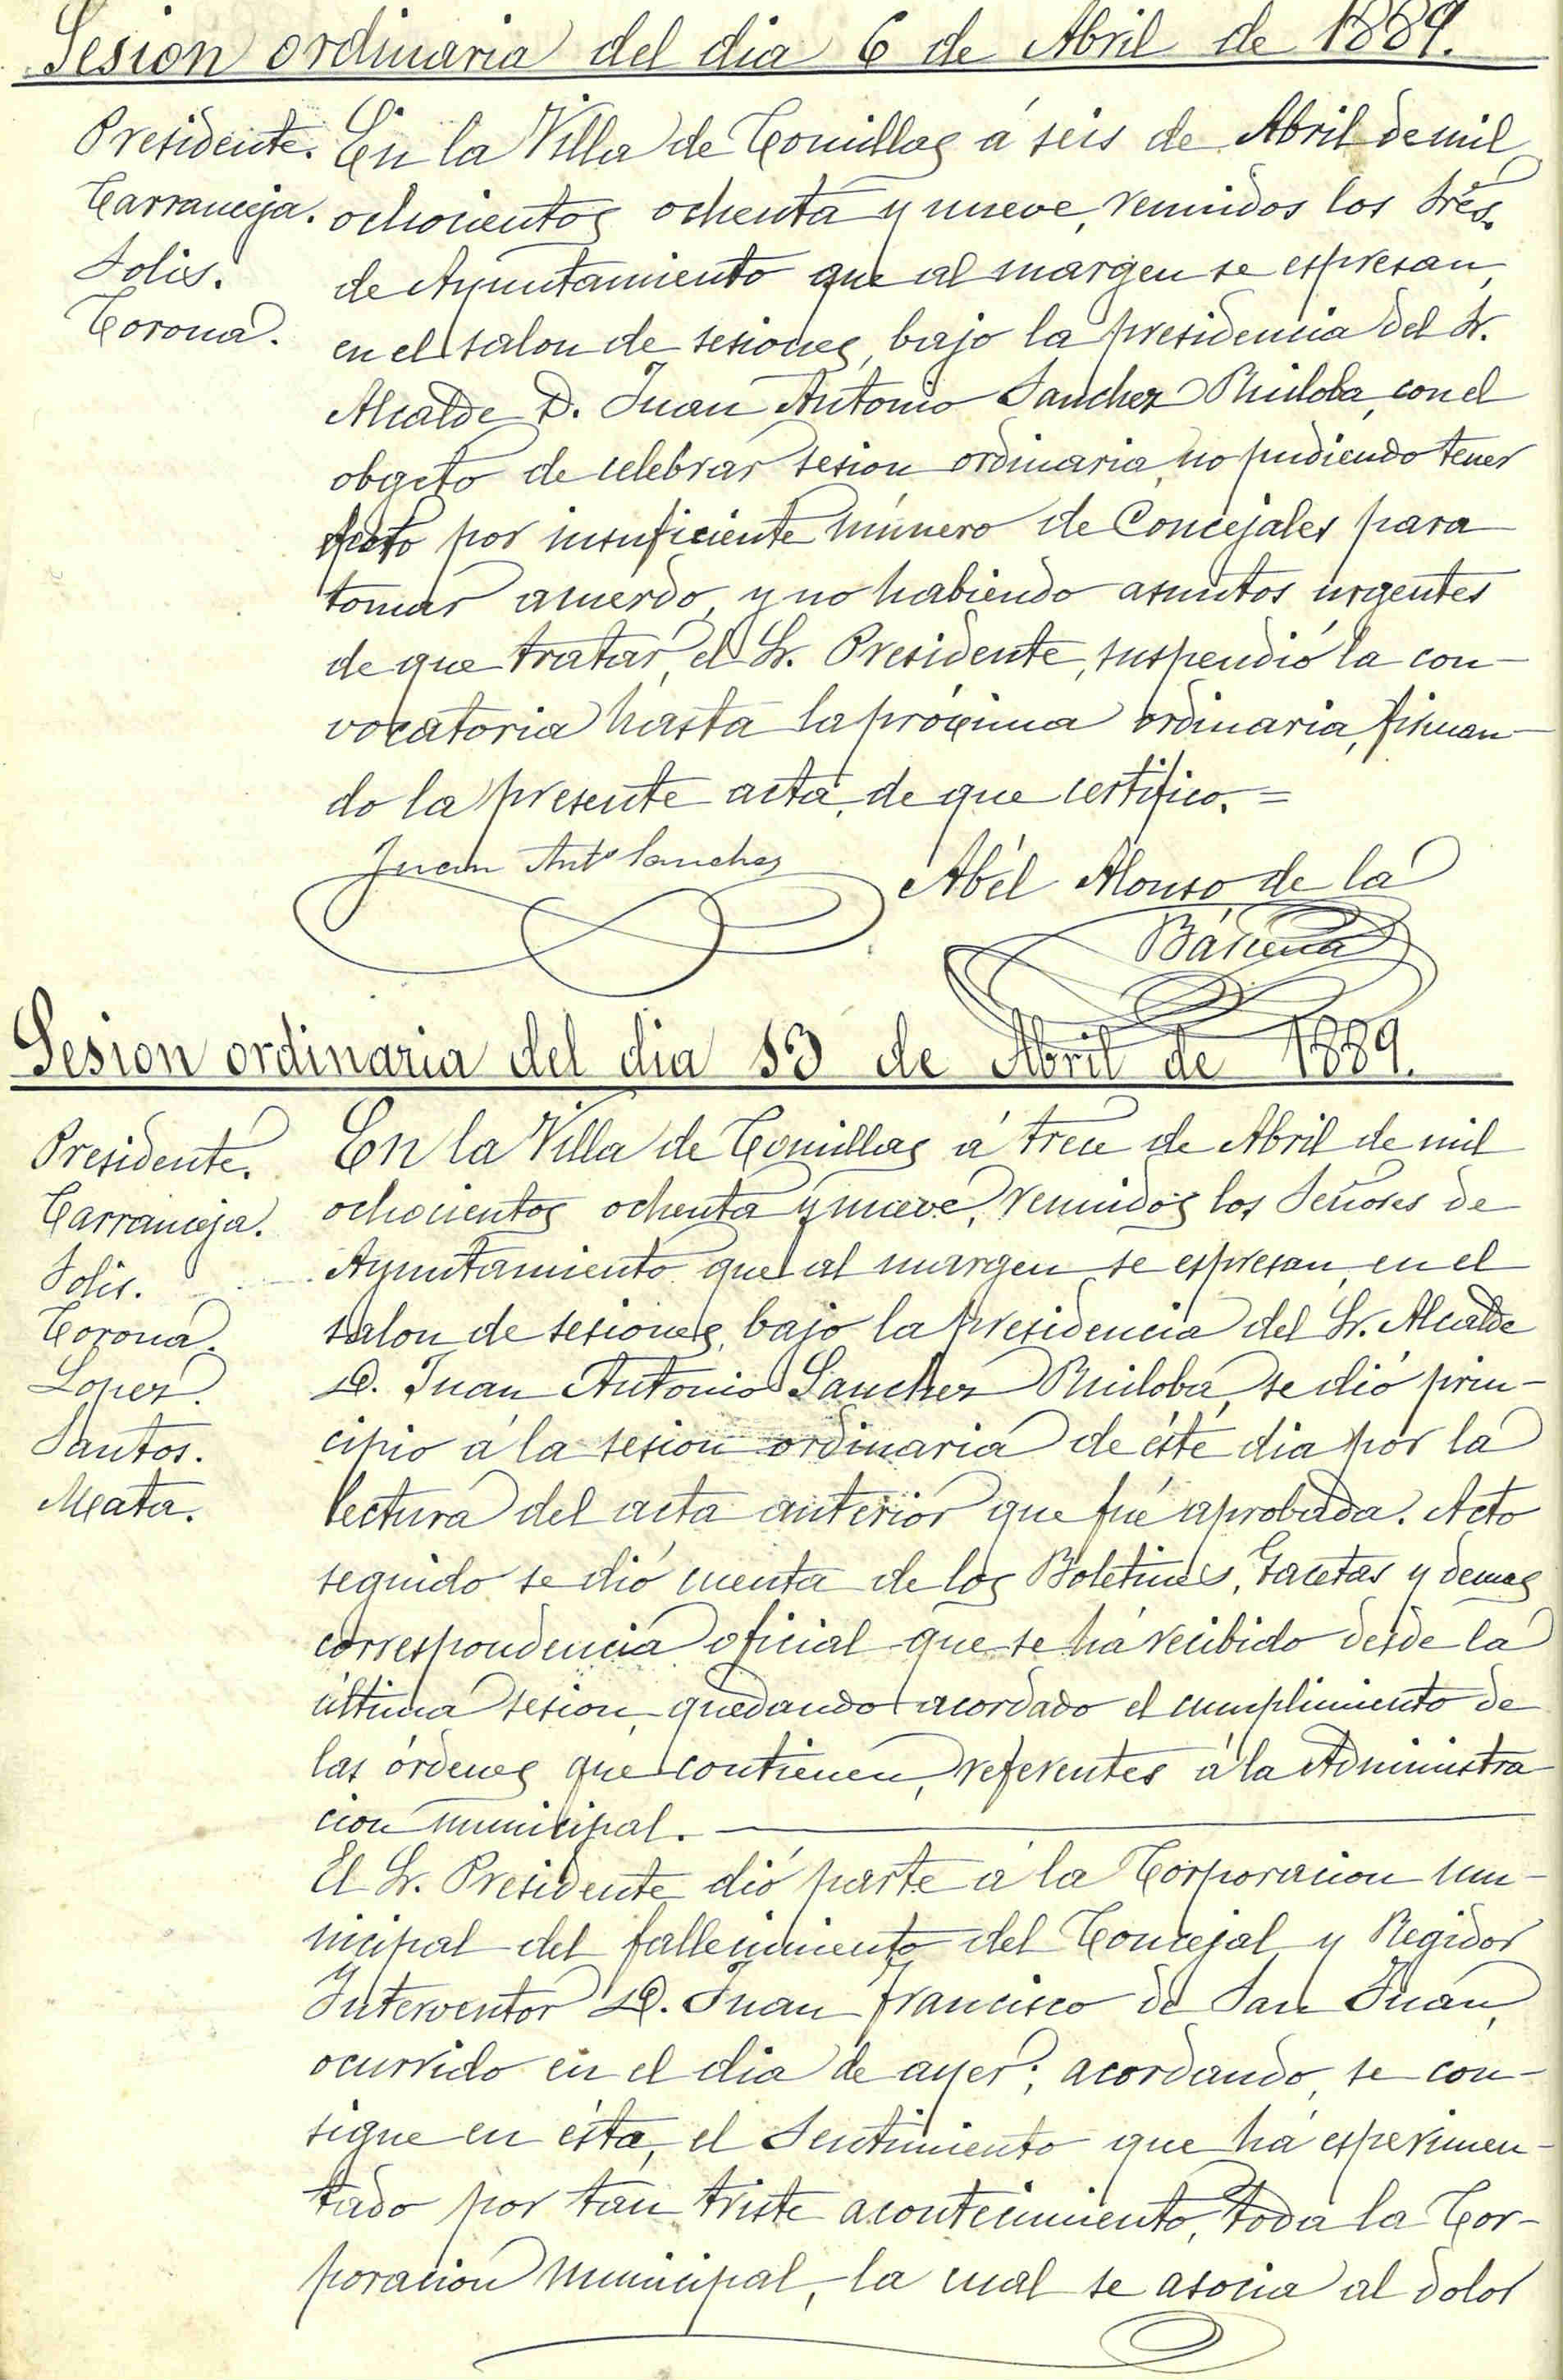 Sesion ordinaria del dia 6 de Abril de 1889.
Presidente.
Carranceja.
Solis.
Corona.
En la Villa de Comillas á seis de Abril de mil
ochocientos ochenta y nueve, reunidos los Sres.
de Ayuntamiento que al margen se espresan,
en el salon de sesiones, bajo la presidencia del Sr.
Alcalde D. Juan Antonio Sanchez Ruiloba, con el
obgeto de celebrar sesion ordinaria, no pudiendo tener
efecto por insuficiente número de Concejales para
tomar acuerdo, y no habiendo asuntos urgentes
de que tratar, el Sr. Presidente, suspendió la con-
vocatoria hasta la prócsima ordinaria, firman-
do la presente acta, de que certifico. =
Juan Antº Sanchez
Abél Alonso de la
Bárcena
Sesion ordinaria del dia 13 de Abril de 1889.
Presidente.
Carranceja.
Solis.
Corona.
Lopez.
Santos.
Mata.
En la Villa de Comillas á trece de Abril de mil
ochocientos ochenta y nueve, reunidos los Señores de
Ayuntamiento que al margen se espresan, en el
salon de sesiones, bajo la presidencia del Sr. Alcalde
D. Juan Antonio Sanchez Ruiloba, se dió prin-
cipio á la sesion ordinaria de éste dia por la
lectura del acta anterior que fué aprobada. Acto
seguido se dió cuenta de los Boletines, Gacetas y demas
correspondencia oficial que se há recibido desde la
última sesion, quedando acordado el cumplimiento de
las órdenes que contienen, referentes á la Administra
cion municipal.
El Sr. Presidente dió parte á la Corporacion mu-
nicipal del fallecimiento del Concejal y Regidor
Interventor D. Juan Francisco de San Juan,
ocurrido en el dia de ayer; acordando, se con-
signe en ésta, el Sentimiento que há esperimen-
tado por tan triste acontecimiento, toda la Cor-
poracion municipal, la cual se asocia al dolor